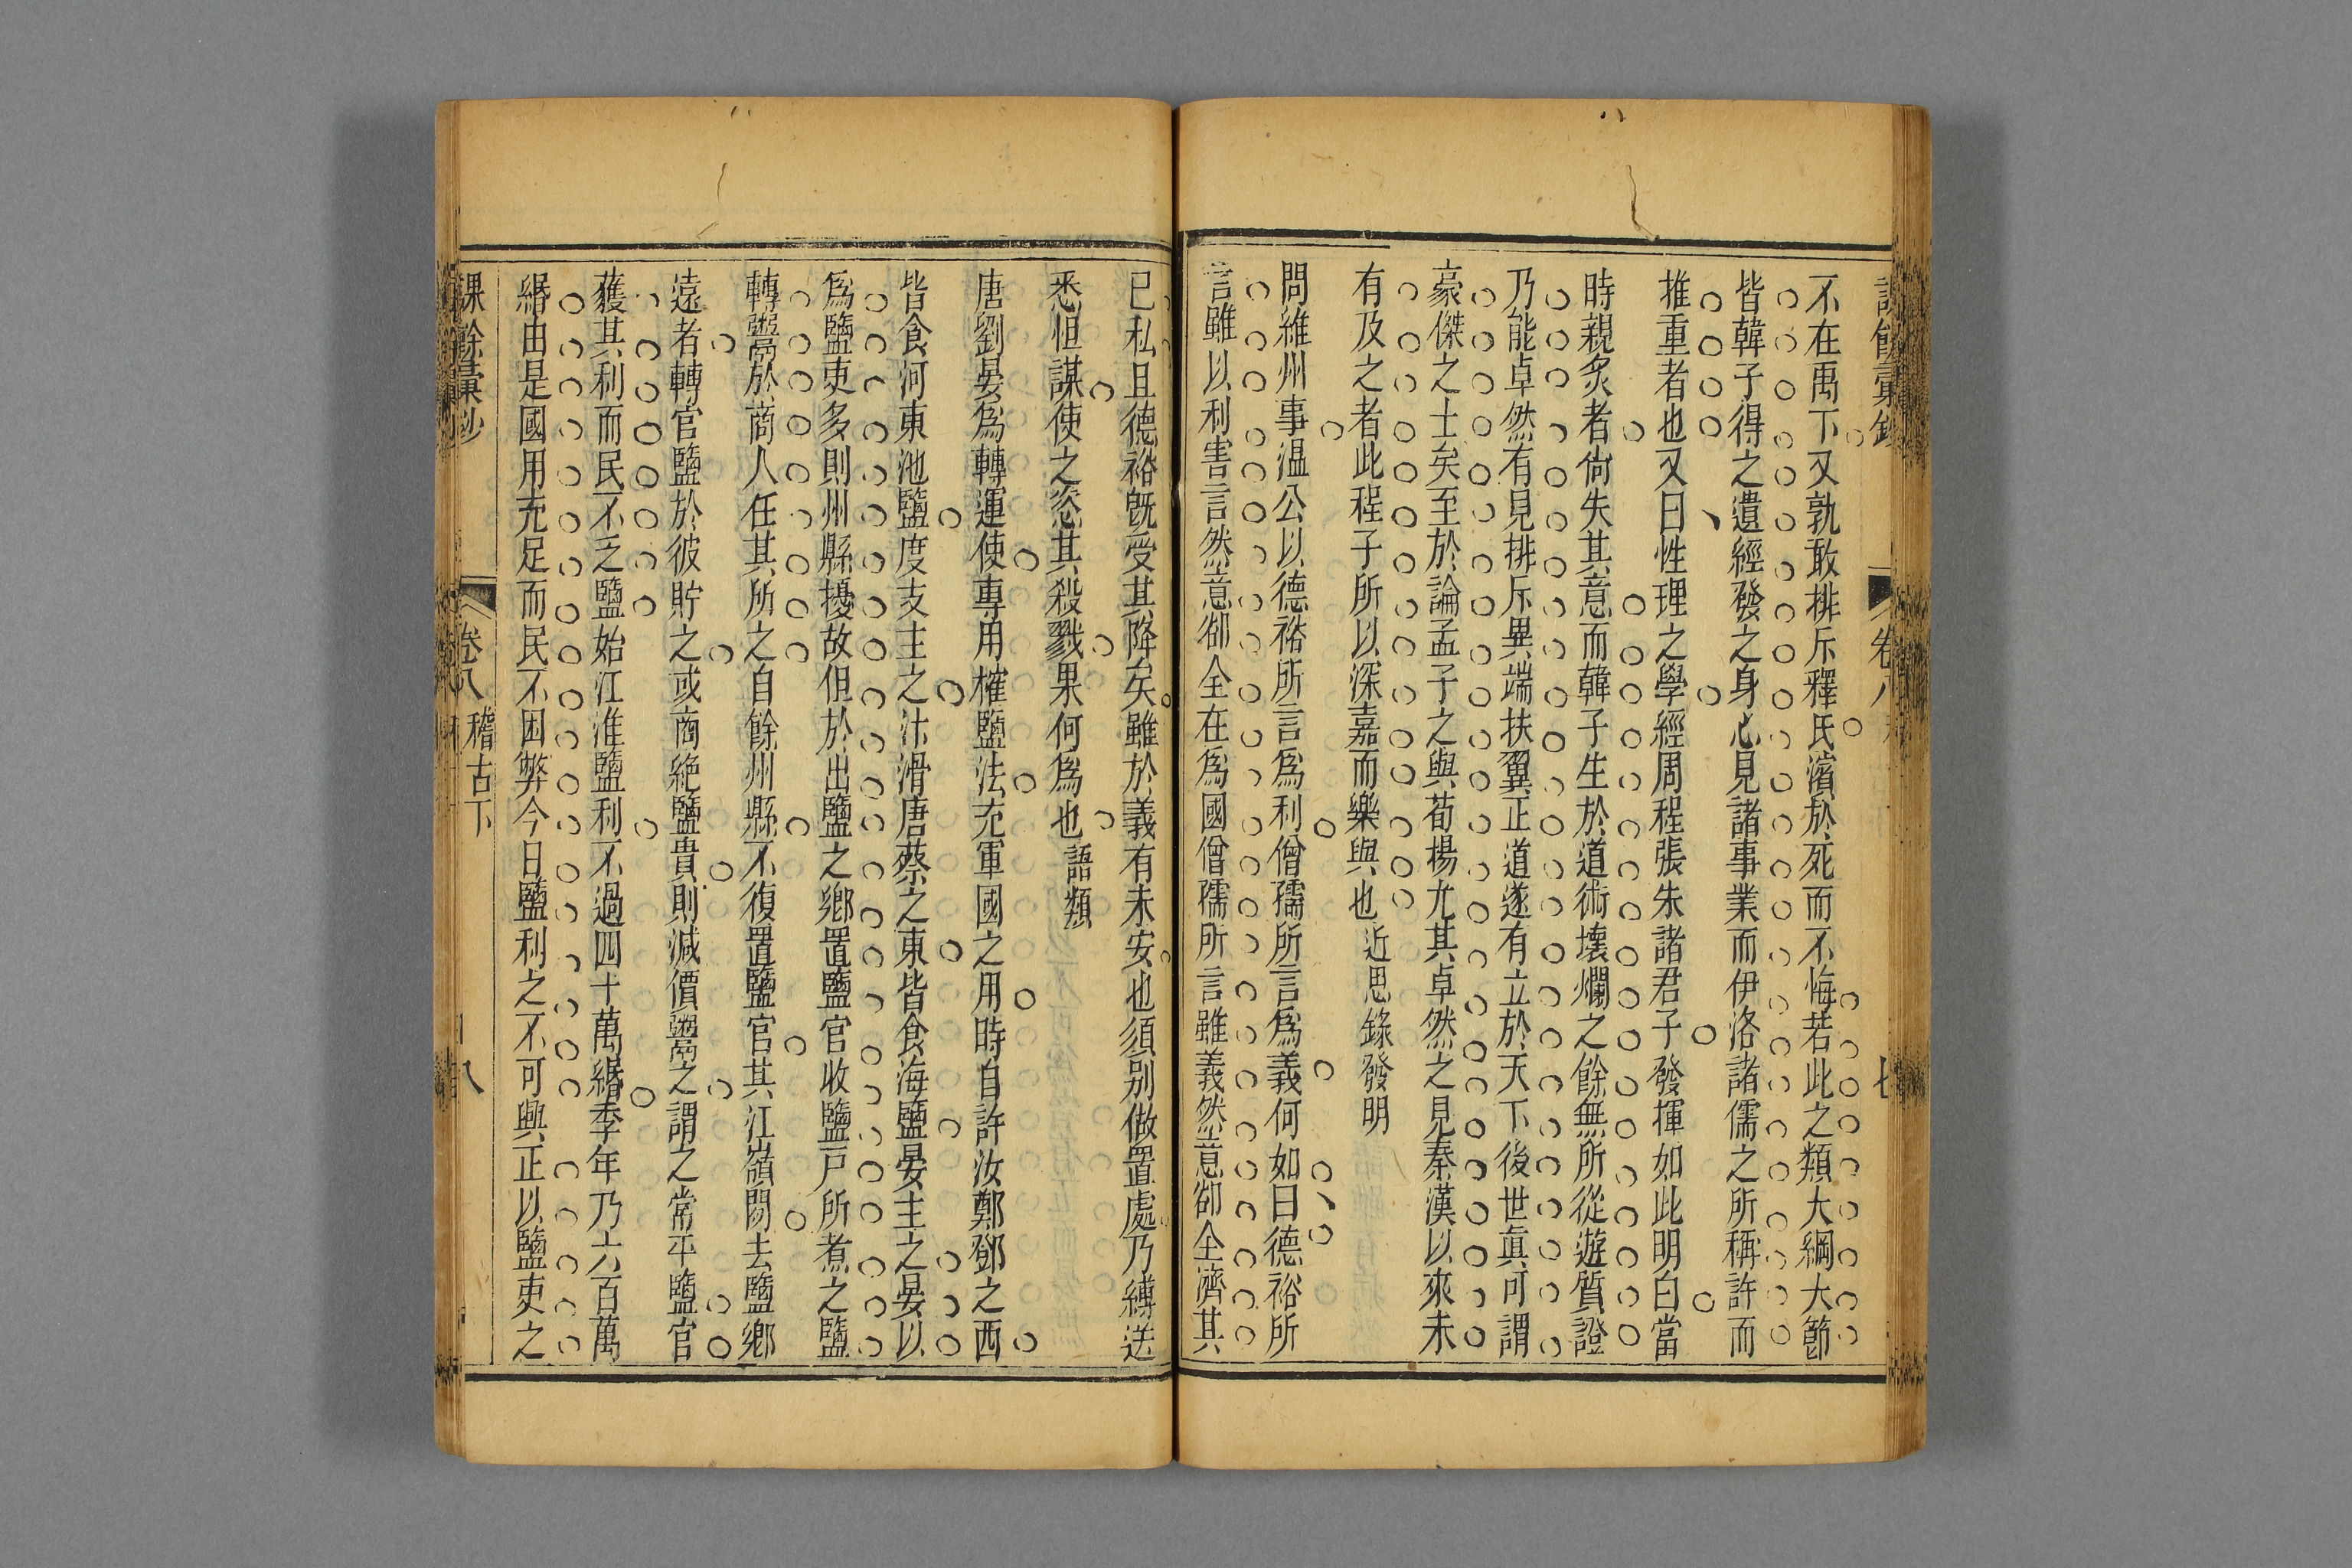 不在禹下又孰敢排斥釋氏濱於死而不悔若此之類大綱大節
皆韓子得之遺經發之身心見諸事業而伊洛諸儒之所稱許而
推重者也又曰性理之學經周程張朱諸君子發揮如此明白當
時親炙者尙失其意而韓子生於道術壞爛之餘無所從遊質證
乃能卓然有見排斥異端扶翼正道遂有立於天下後世眞可謂
豪傑之士矣至於論孟子之與荀楊尤其卓然之見秦漢以來未
有及之者此程子所以深嘉而樂與也近思錄發明
問維州事温公以德裕所言爲利僧孺所言爲義何如曰德裕所
言雖以利害言然意卻全在爲國僧孺所言雖義然意卻全濟其
已私且德裕旣受其降矣雖於義有未安也須别做置處乃縛送
悉怛謀使之恣其殺戮果何爲也語類
唐劉晏爲轉運使專用榷鹽法充軍國之用時自許汝鄭鄧之西
皆食河東池鹽度支主之汴滑唐蔡之東皆食海鹽晏主之晏以
爲鹽吏多則州縣擾故但於出鹽之鄉置鹽官收鹽戸所煮之鹽
轉鬻於商人任其所之自餘州縣不復置鹽官其江嶺間去鹽鄉
遠者轉官鹽於彼貯之或商絶鹽貴則減價鬻之謂之常平鹽官
獲其利而民不乏鹽始江淮鹽利不過四十萬緡季年乃六百萬
緡由是國用充足而民不困弊今日鹽利之不可興正以鹽吏之
課餘彙鈔
卷八
稽古下
八